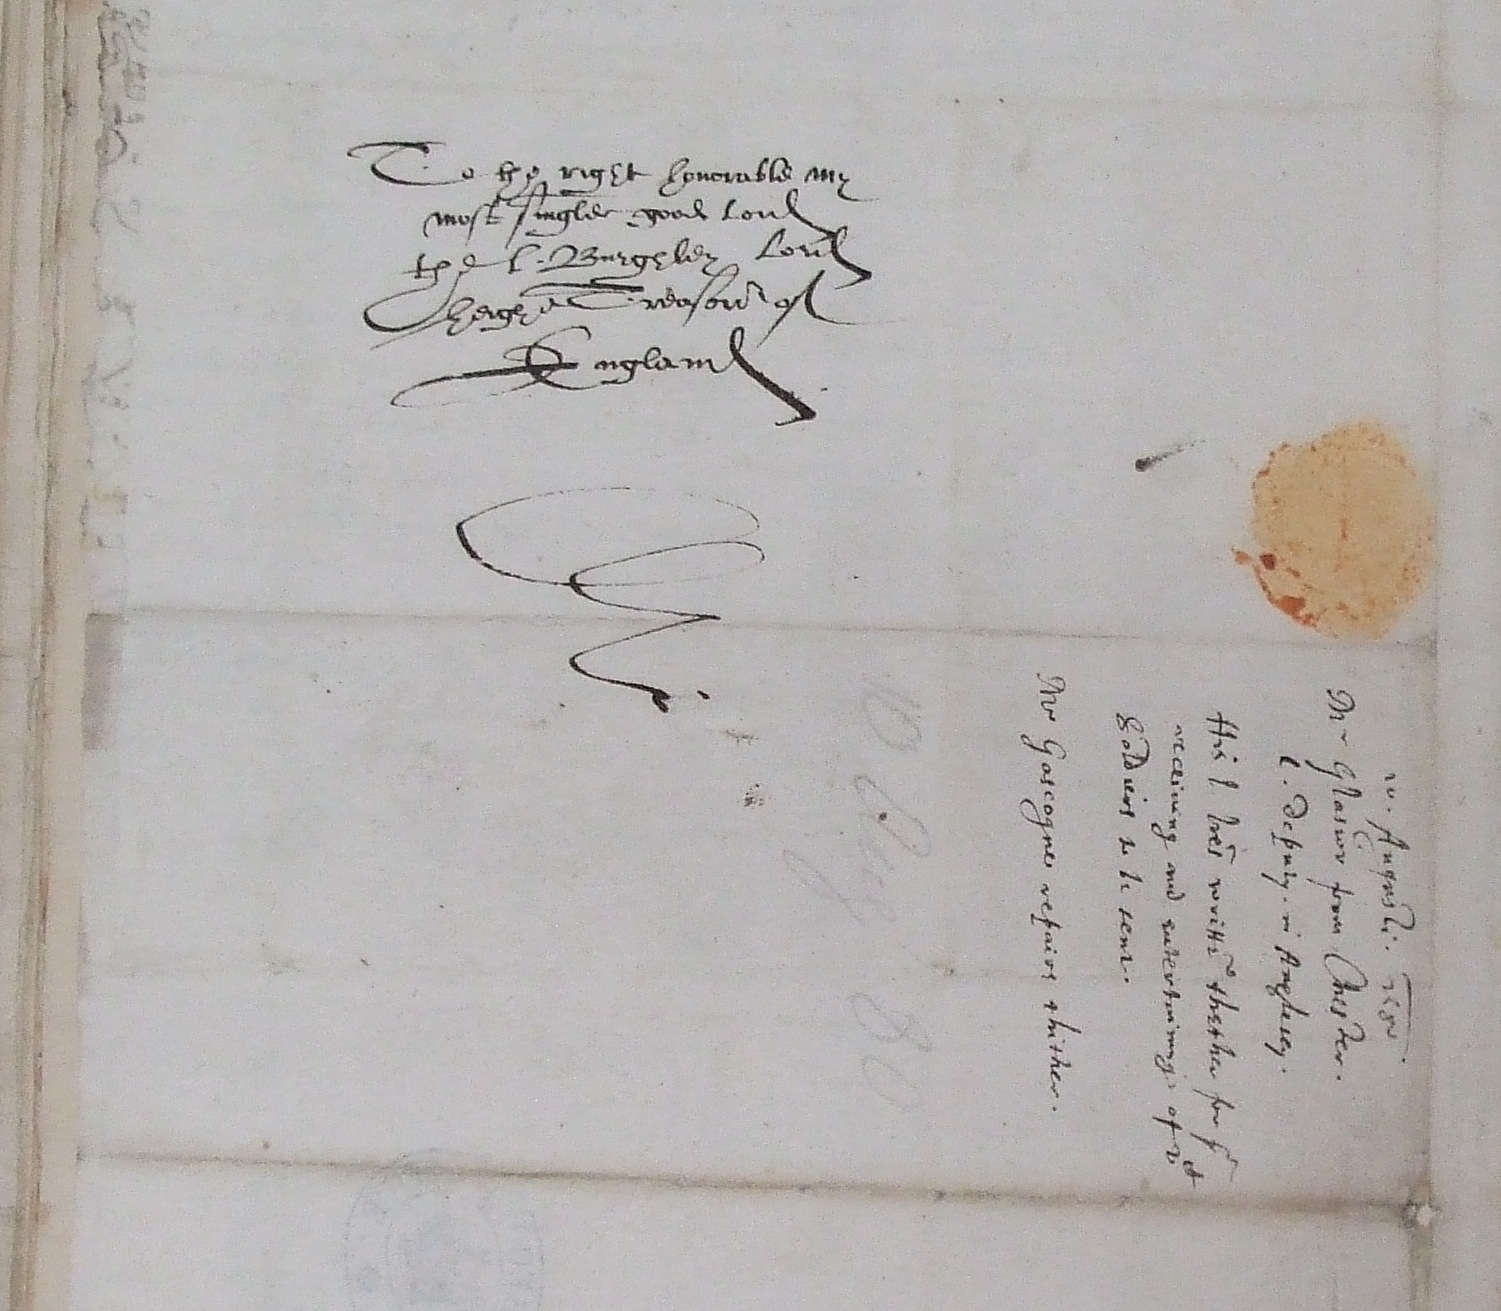 To the right honorable my
most singler good Lord
the L. Burghley Lord
heighe Treasorer of
England
Augusti. 1580.
Mr Glaseor from Chester.
L. deputy in Anglesey.
His l lres written thether for ye
receiving and entertaining of
Soldiers to be sent.
Mr Gascognes repaire thither.
10 Aug 80